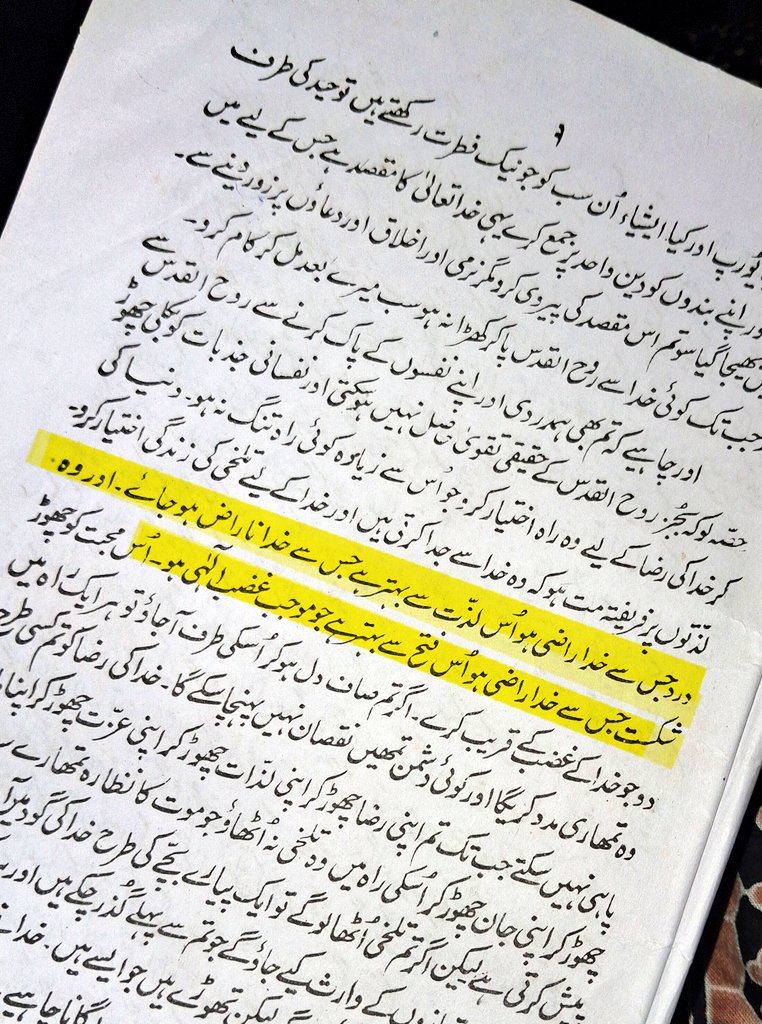 ۹
یورپ اور کیا ایشیاء اُن سب کو جو نیک فطرت رکھتے ہیں توحید کی طرف
اور اپنے بندوں کو دین واحد پر جمع کرے یہی خدا تعالیٰ کا مقصد ہے جس کے لیے میں
میں بھیجا گیا سو تم اس مقصد کی پیروی کرو مگر نرمی اور اخلاق اور دعاؤں پر زور دینے سے۔
اور جب تک کوئی خدا سے روح القدس پا کر کھڑا نہ ہو سب میرے بعد مل کر کام کرو۔
اور چاہیے کہ تم بھی ہمدردی اور اپنے نفسوں کے پاک کرنے سے روح القدس سے
حصہ لو کہ بجُز روح القدس کے حقیقی تقویٰ حاصل نہیں ہو سکتی اور نفسانی جذبات کو بکلی چھوڑ
کر خدا کی رضا کے لیے وہ راہ اختیار کرو جو اُس سے زیادہ کوئی راہ تنگ نہ ہو۔ دنیا کی
لذتوں پر فریفتہ مت ہو کہ وہ خدا سے جدا کرتی ہیں اور خدا کے لیے تلخی کی زندگی اختیار کرو۔
درد جس سے خدا راضی ہو اُس لذّت سے بہتر ہے جس سے خدا ناراض ہو جائے۔ اور وہ
شکست جس سے خدا راضی ہو اُس فتح سے بہتر ہے جو موجب غضب الٰہی ہو۔ اُس محبت کو چھوڑ
دو جو خدا کے غضب کے قریب کرے۔ اگر تم صاف دل ہو کر اُسکی طرف آ جاؤ تو ہر ایک راہ میں
وہ تمھاری مدد کریگا اور کوئی دشمن تمھیں نقصان نہیں پہنچا سکے گا۔ خدا کی رضا کو تم کسی طرح
پا ہی نہیں سکتے جب تک تم اپنی رضا چھوڑ کر اپنی لذّات چھوڑ کر اپنی عزّت چھوڑ کر اپنا
چھوڑ کر اپنی جان چھوڑ کر اُسکی راہ میں وہ تلخی نہ اُٹھاؤ جو موت کا نظارہ تمھارے
پیش کرتی ہے لیکن اگر تم تلخی اُٹھا لو گے تو ایک پیارے بچّے کی طرح خدا کی گود میں
کے وارث کیے جاؤ گے جو تم سے پہلے گذر چکے ہیں اور
لیکن تھوڑے ہیں جو ایسے ہیں۔ خدا نے
لگانا چاہیے